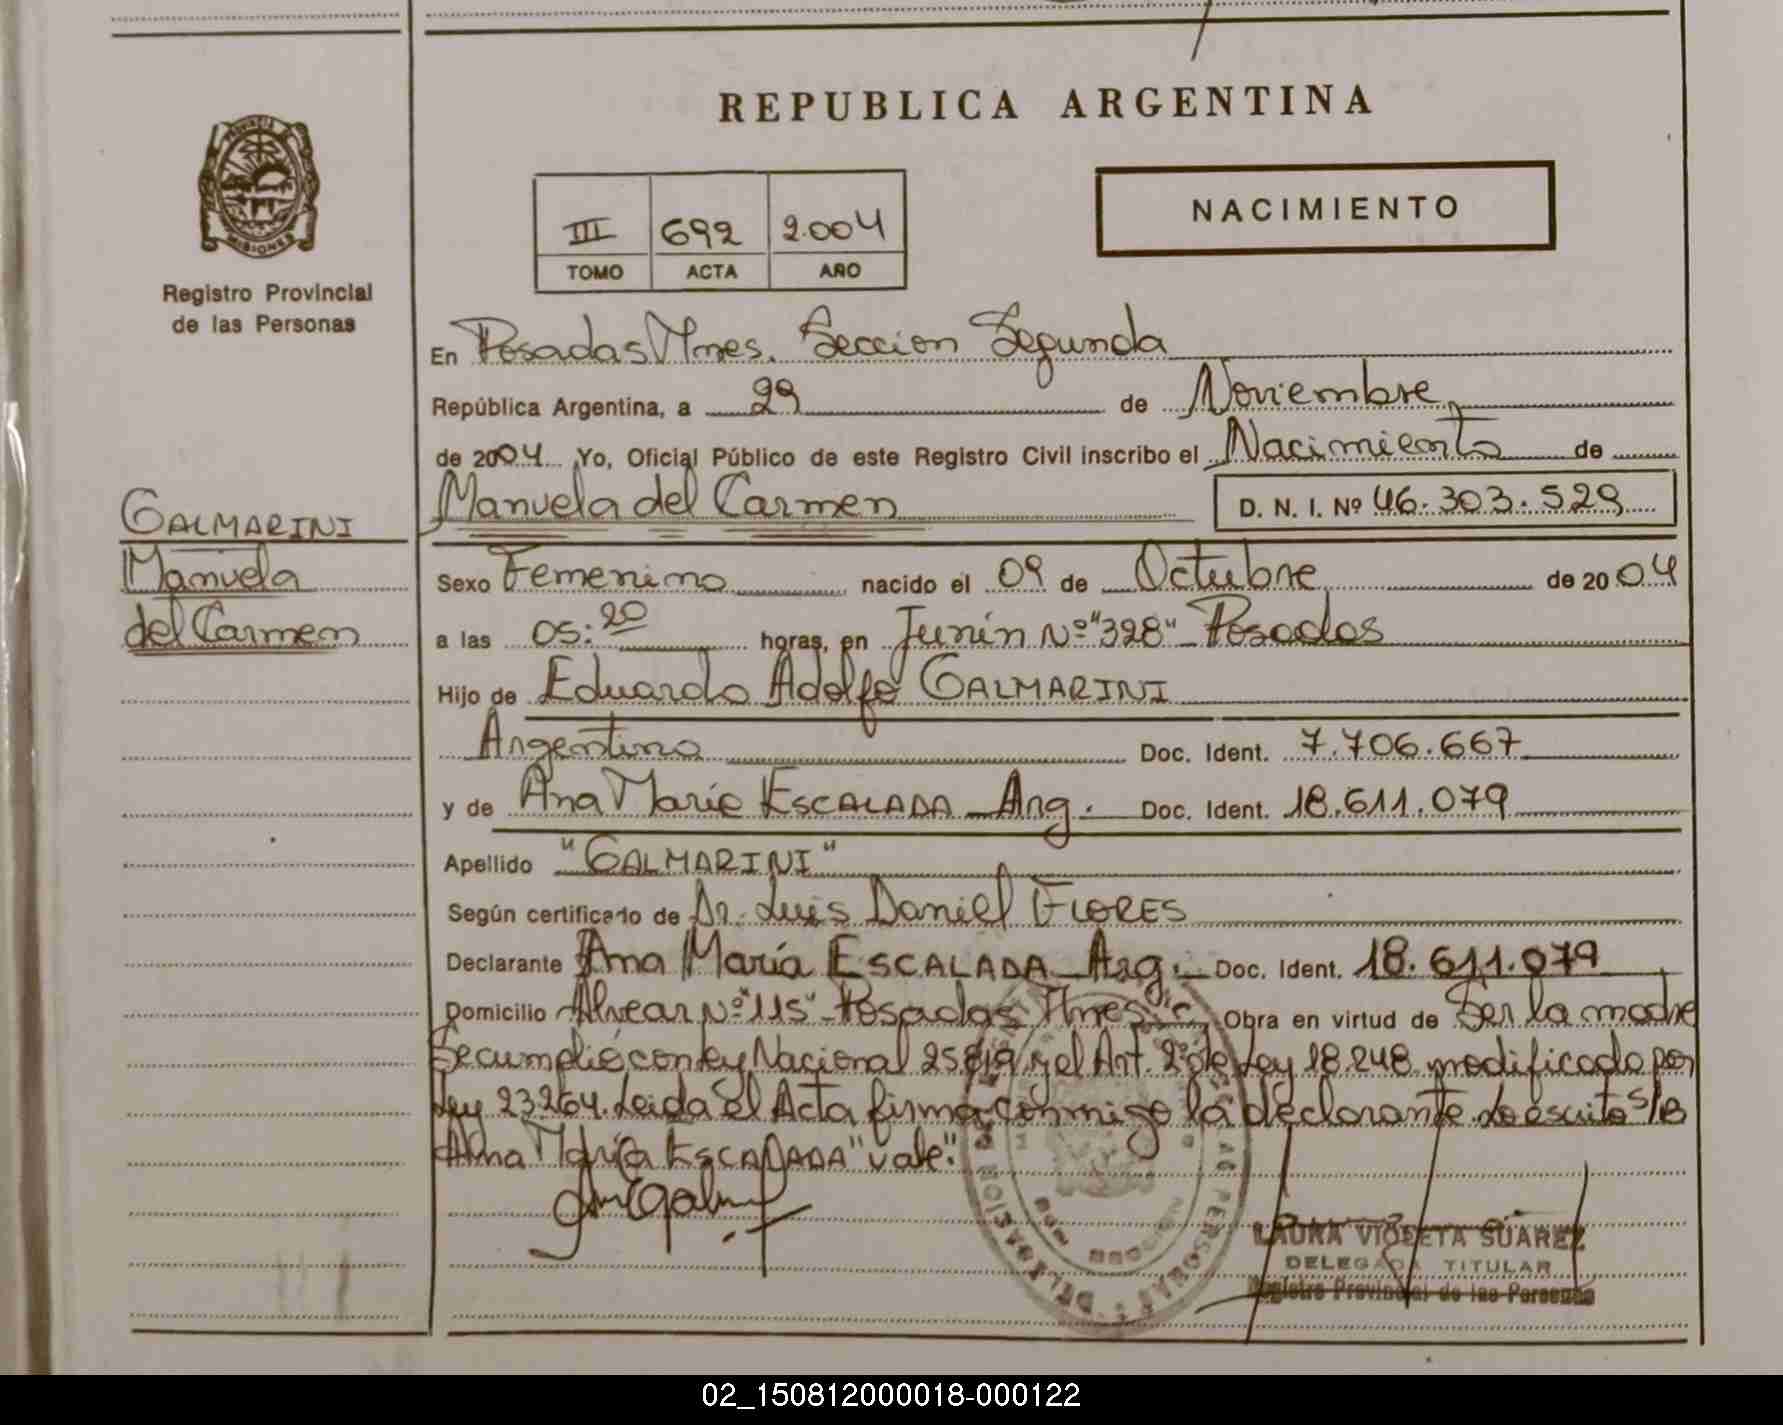 REPUBLICA ARGENTINA
PROVINCIA D
MISIONES
Registro Provincial
de las Personas
III 692 2.004
TOMO ACTA AÑO
NACIMIENTO
En Posadas Mnes. Seccion Segunda
República Argentina, a 29 de Noviembre
de 2004 Yo, Oficial Público de este Registro Civil inscribo el Nacimiento de
Manuela del Carmen D. N. I. Nº 46.303.529
GALMARINI
Manuela
del Carmen
Sexo Femenino nacido el 09 de Octubre de 2004
a las 05:20 horas, en Junín Nº "328" Posadas
Hijo de Eduardo Adolfo GALMARINI
Argentino Doc. Ident. 7.706.667
y de Ana María ESCALADA Arg. Doc. Ident. 18.611.079
Apellido "GALMARINI"
Según certificado de Dr. Luis Daniel FLORES
Declarante Ana María ESCALADA Arg. Doc. Ident. 18.611.079
Domicilio Alvear Nº "115" Posadas Mnes. Obra en virtud de Ser la madre
Se cumplió con Ley Nacional 25819 y el Art. 2º de Ley 18.248 modificado por
Ley 23264. Leida el Acta firma conmigo la declarante. Lo escrito s/B
"Ana María ESCALADA" vale".
LAURA VIOLETA SUAREZ
DELEGADA TITULAR
Registro Provincial de las Personas
02_150812000018-000122